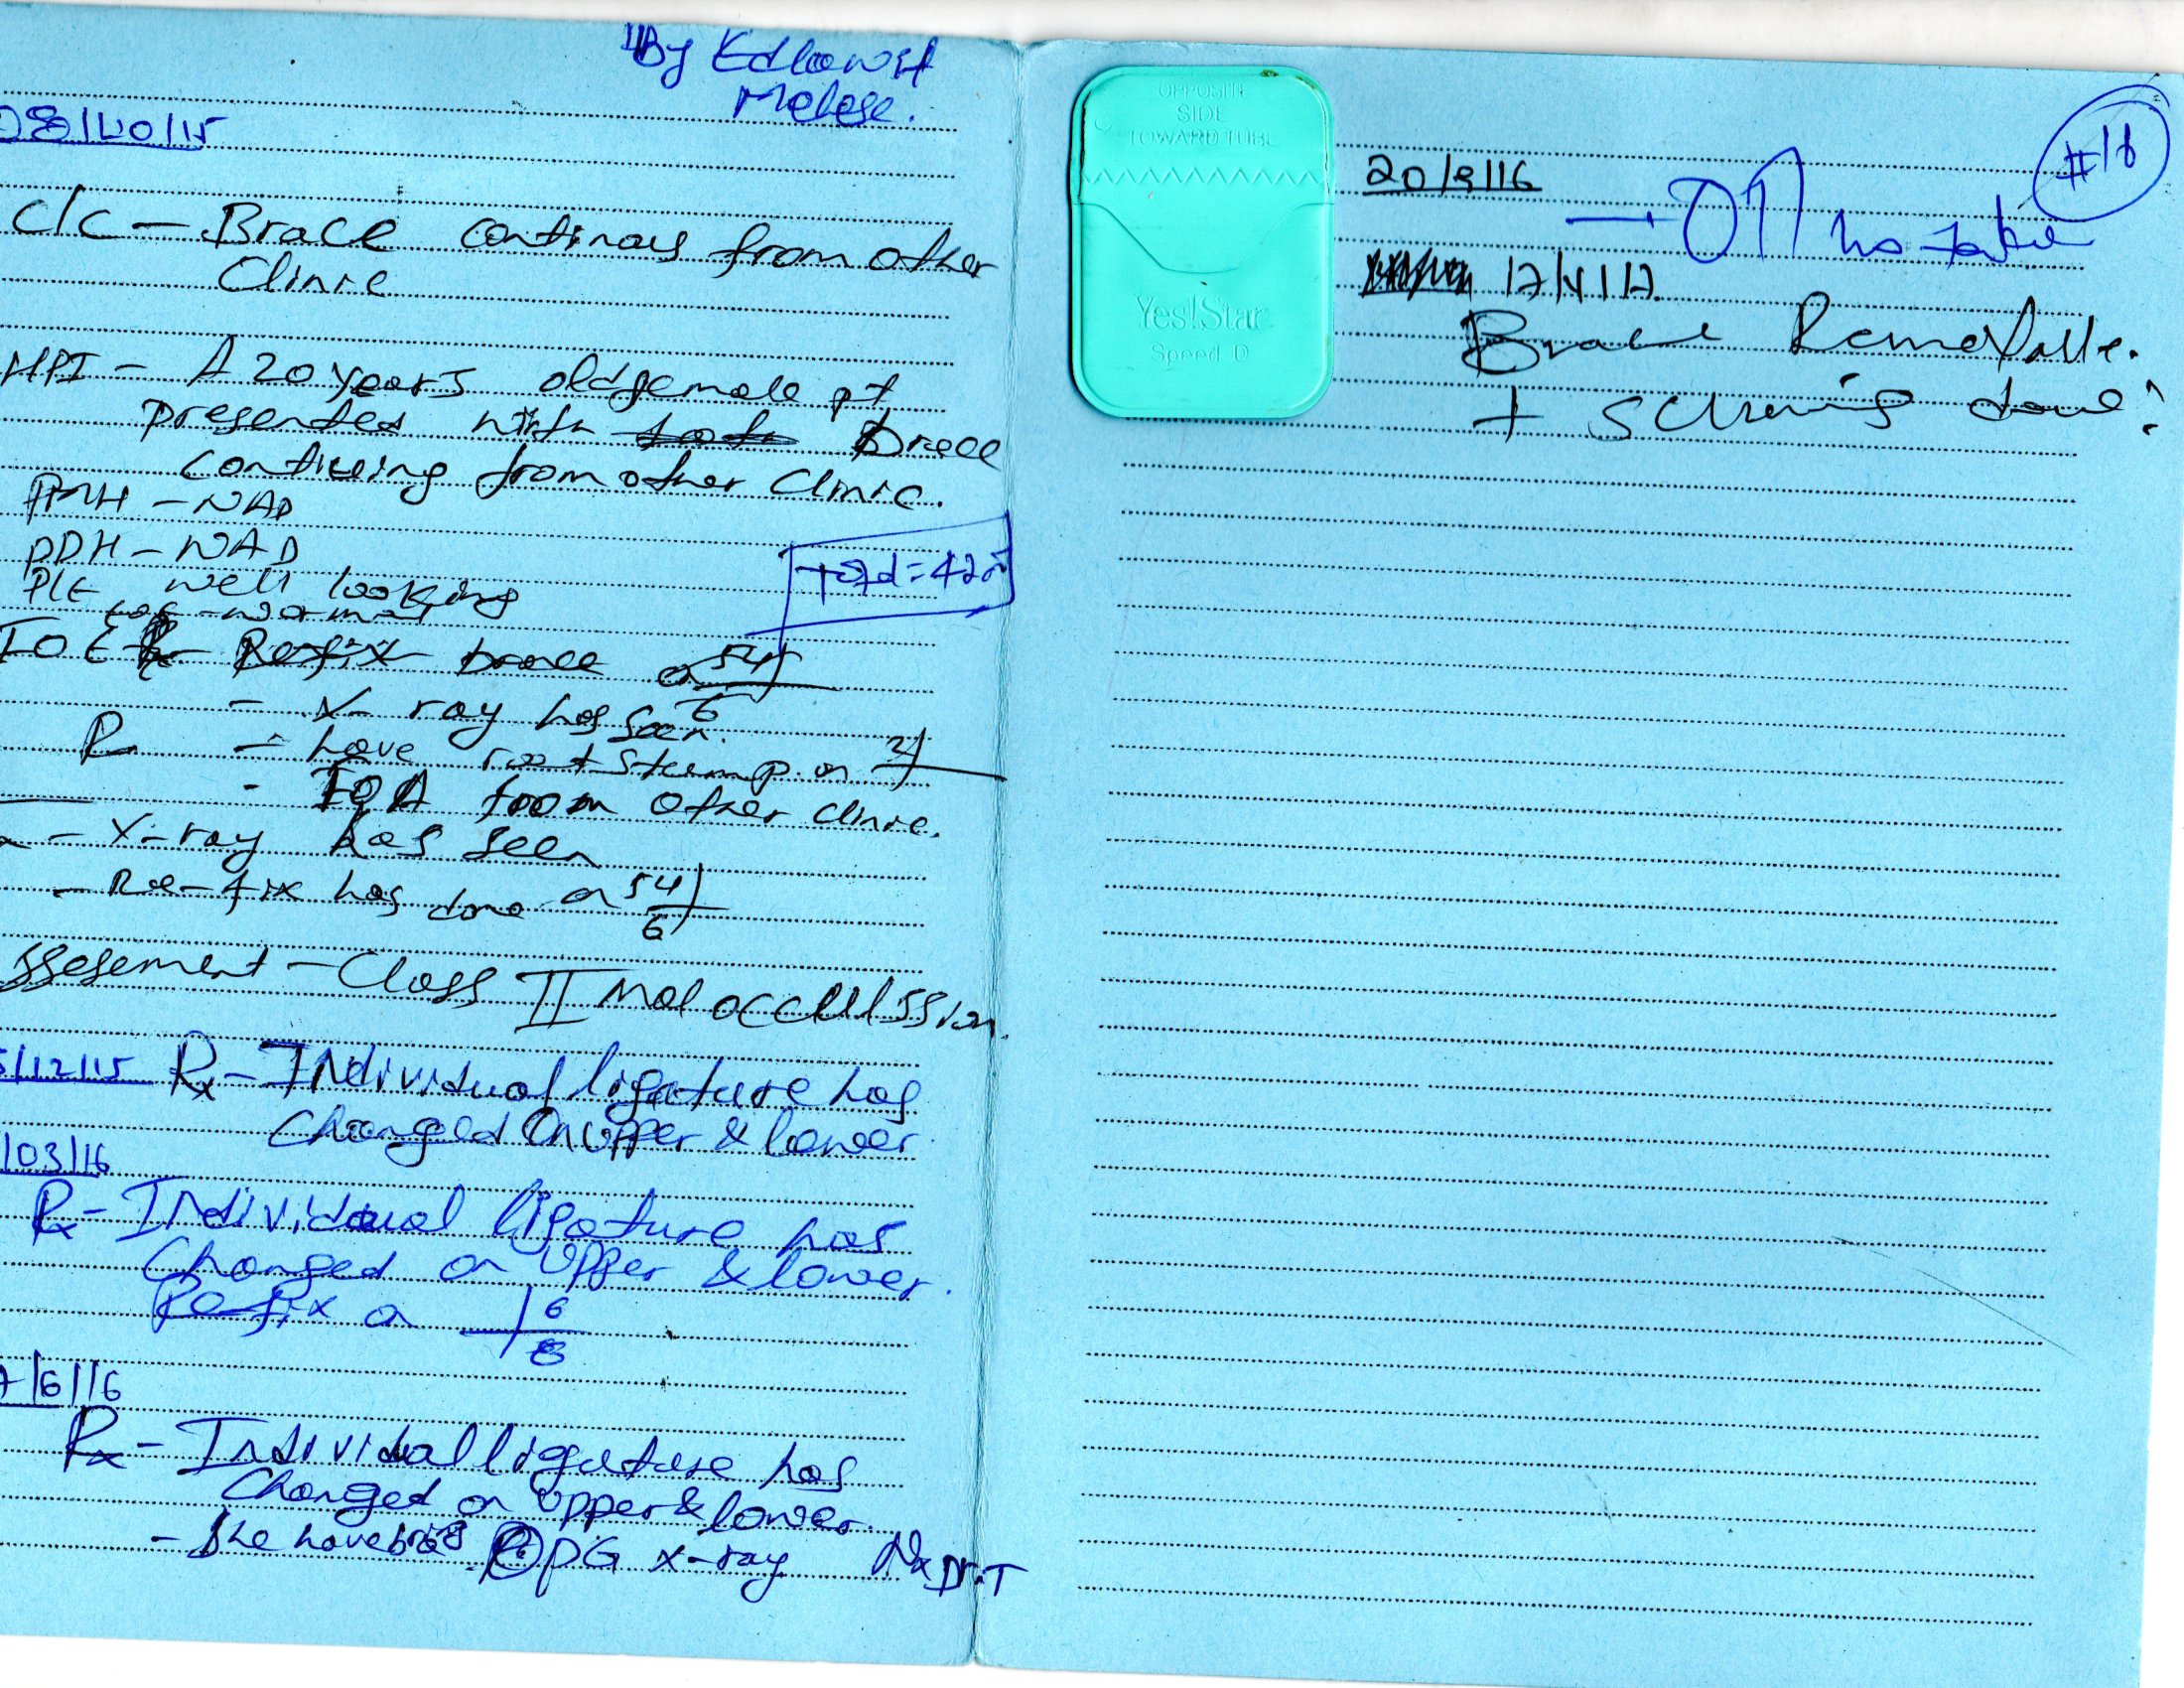 By
Melese.
08/10/15
C/C - Brace continous from other
Clinic
HPI - A 20 years old female pt
presented with brace
continuing from other clinic.
PMH - NAD
PDH - NAD
P/E well looking
- normal
Total = 420
IOE - Refix brace on 54
6
- X-ray has seen.
R - have root stump on 2
- from other clinic.
- X-ray has seen
- Re-fix has done on 54
6
ssesement - Class II Malocclussion
5/12/15 Rx - Individual ligature has
Changed On Upper & lower
/03/16
Rx - Individual ligature has
Changed on Upper & lower.
Refix on 6
8
7/6/16
Rx - Individual ligature has
Changed on Upper & lower.
- She have OPG x-ray Dr. T
OPPOSITE
SIDE
TOWARD TUBE
Yes!Star
Speed D
#16
20/9/16
17/4/17
Brace
+ done